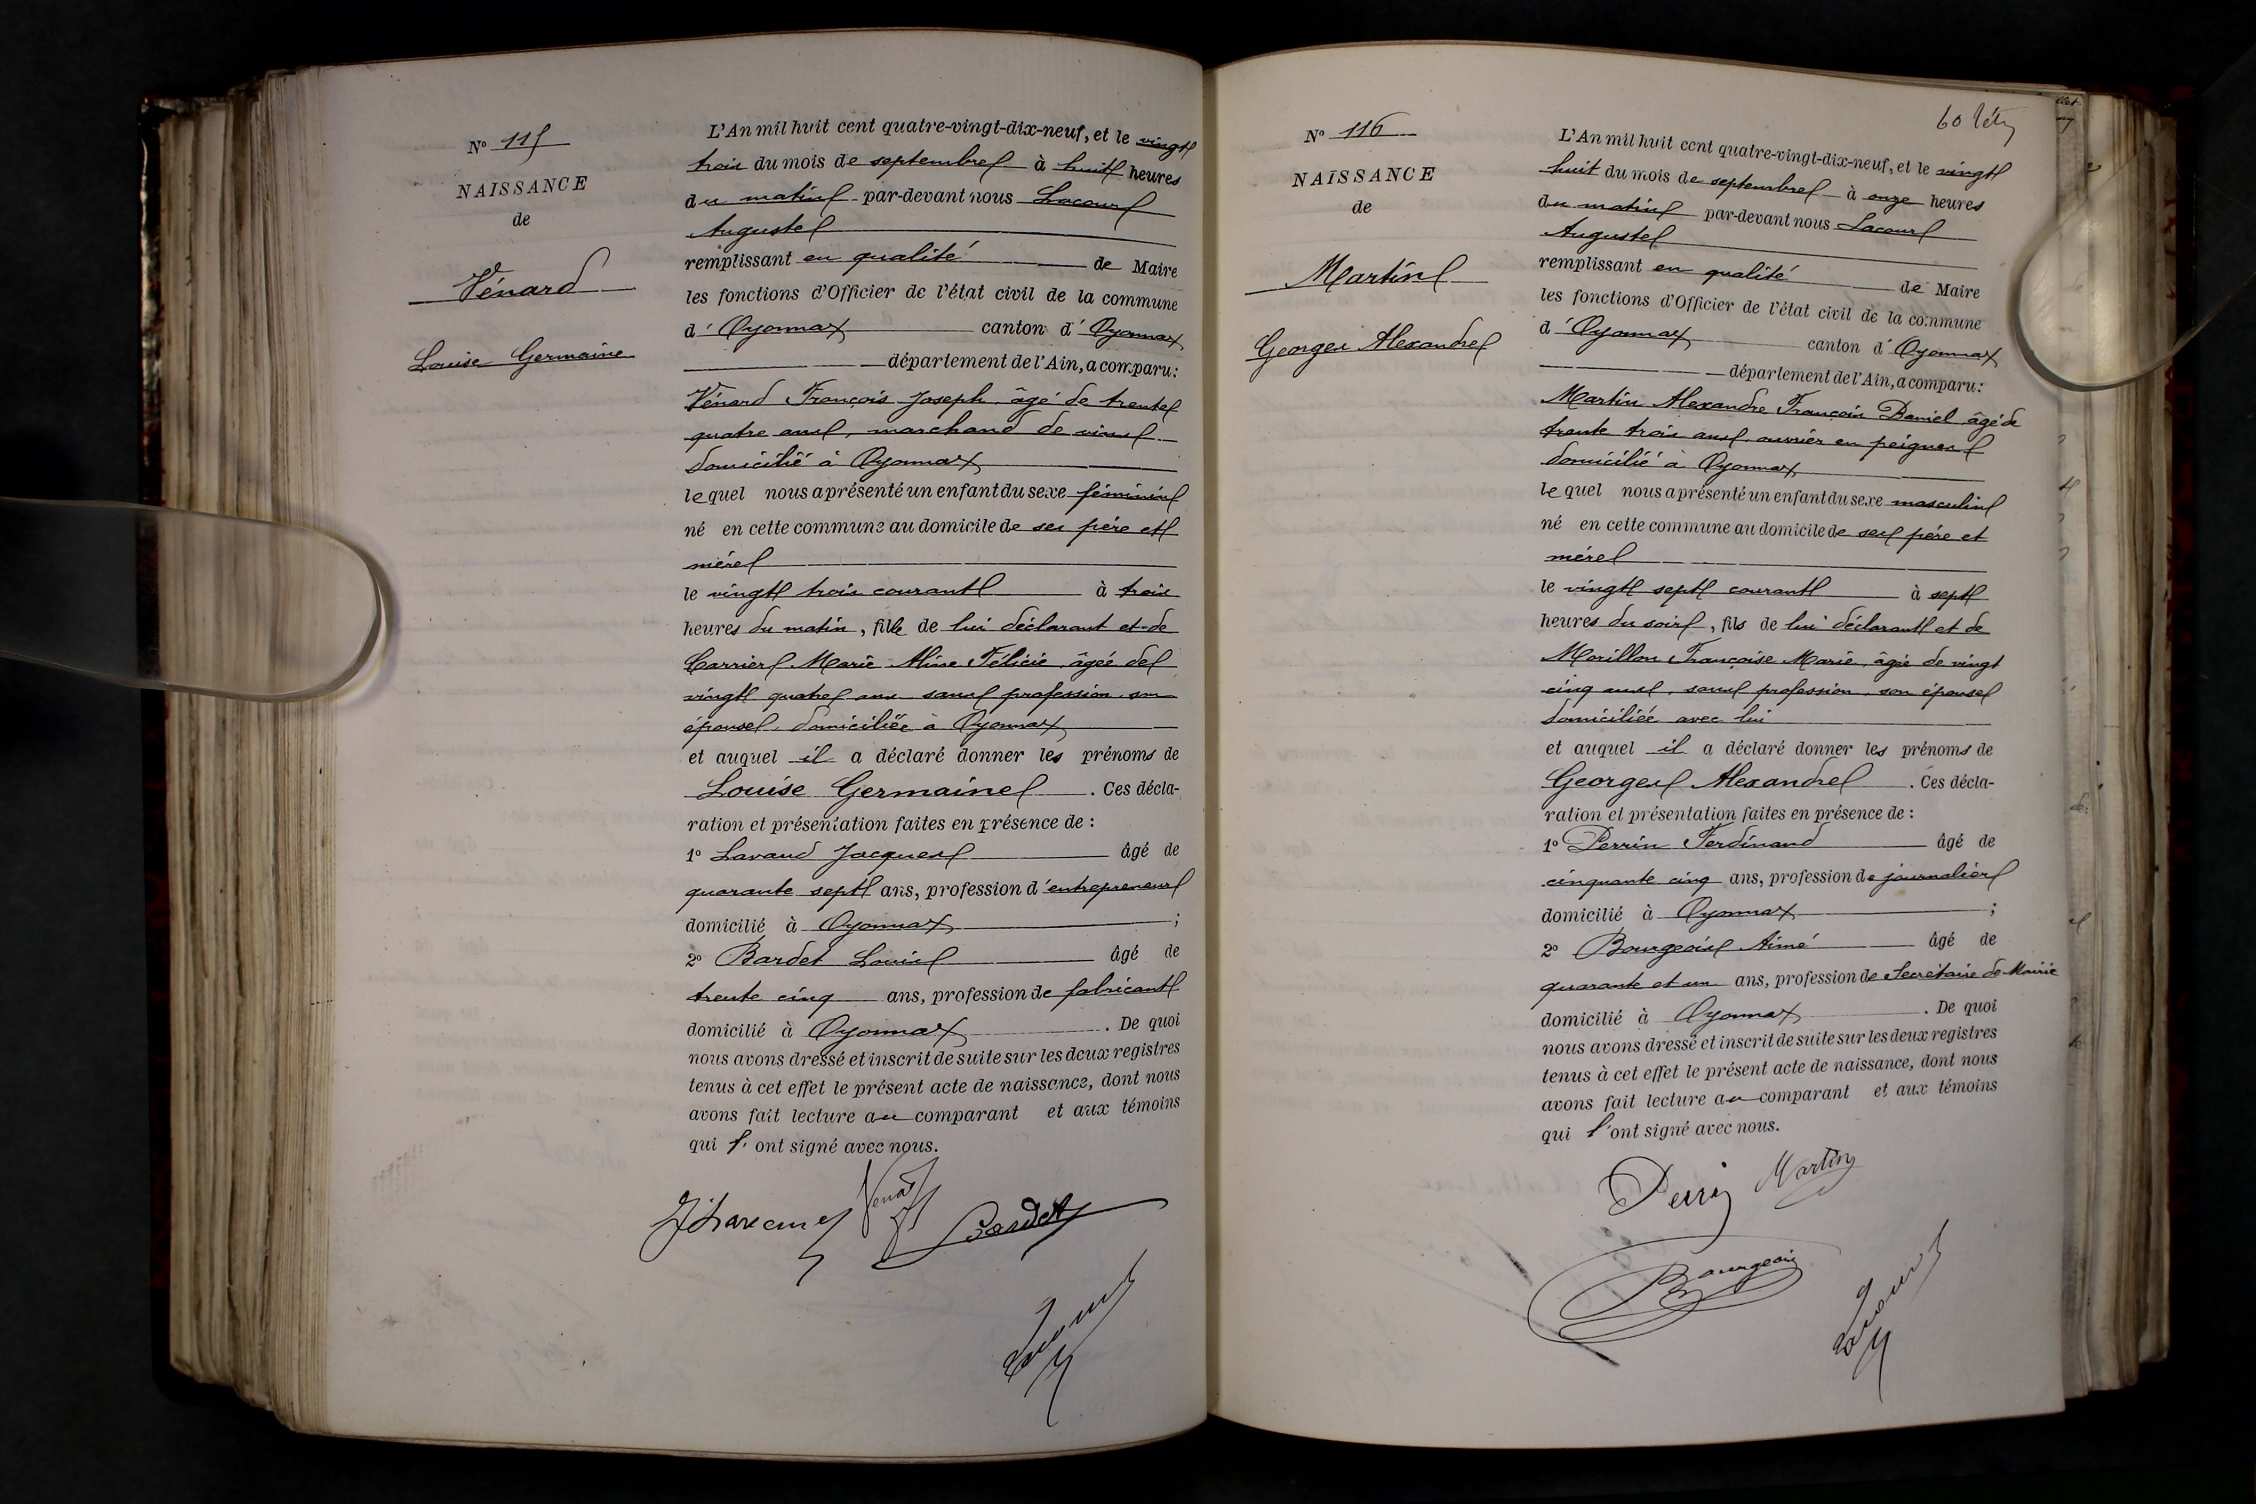 N° 115
NAISSANCE
de
Vénard
Louise Germaine
L'An mil huit cent quatre-vingt-dix-neuf, et le vingt
trois du mois de septembre à huit heures
du matin par-devant nous Lacour
Auguste
remplissant en qualité de Maire
les fonctions d'Officier de l'état civil de la commune
d'Oyonnax canton d'Oyonnax
département de l'Ain, a comparu:
Vénard François Joseph âgé de trente
quatre ans, marchand de vins
domicilié à Oyonnax
lequel nous a présenté un enfant du sexe féminin
né en cette commune au domicile de ses père et
mère
le vingt trois courant à trois
heures du matin, fille de lui déclarant et de
Carrier Marie Aline Félicie, âgée de
vingt quatre ans sans profession son
épouse, domiciliée à Oyonnax
et auquel il a déclaré donner les prénoms de
Louise Germaine. Ces décla-
ration et présentation faites en présence de :
1° Lavaud Jacques âgé de
quarante sept ans, profession d'entrepreneur
domicilié à Oyonnax ;
2° Bardet Louis âgé de
trente cinq ans, profession de fabricant
domicilié à Oyonnax. De quoi
nous avons dressé et inscrit de suite sur les deux registres
tenus à cet effet le présent acte de naissance, dont nous
avons fait lecture au comparant et aux témoins
qui l'ont signé avec nous.
Bardet
Lacour
60
N° 116
NAISSANCE
de
Martin
Georges Alexandre
L'An mil huit cent quatre-vingt-dix-neuf, et le vingt
huit du mois de septembre à onze heures
du matin par-devant nous Lacour
Auguste
remplissant en qualité de Maire
les fonctions d'Officier de l'état civil de la commune
d'Oyonnax canton d'Oyonnax
département de l'Ain, a comparu:
Martin Alexandre François Daniel âgé de
trente trois ans ouvrier en peignes
domicilié à Oyonnax
lequel nous a présenté un enfant du sexe masculin
né en cette commune au domicile de ses père et
mère
le vingt sept courant à sept
heures du soir, fils de lui déclarant et de
Morillon Françoise Marie, âgée de vingt
cinq ans, sans profession, son épouse
domiciliée avec lui
et auquel il a déclaré donner les prénoms de
Georges Alexandre. Ces décla-
ration et présentation faites en présence de :
1° Perrin Ferdinand âgé de
cinquante cinq ans, profession de journalier
domicilié à Oyonnax ;
2° Bourgeois Aimé âgé de
quarante et un ans, profession de Secrétaire de Mairie
domicilié à Oyonnax. De quoi
nous avons dressé et inscrit de suite sur les deux registres
tenus à cet effet le présent acte de naissance, dont nous
avons fait lecture au comparant et aux témoins
qui l'ont signé avec nous.
Perrin Martin
Bourgeois
Lacour